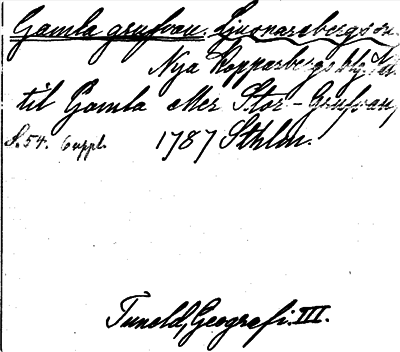 Gamla grufvan. Ljusnarsbergs sn.
Nya Kopparbergs bg.
til Gamla eller Stor-Grufvan,
S. 54. 6 uppl. 1787 Sthlm.
Tuneld, Geografi. III.